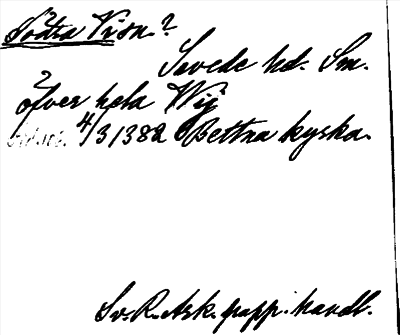 Södra Vison.?
Sevede hd. Sm.
2
öfver hela Wij
4/3 1382 Bettna kyrka.
Sv. R. Ark. papp. handl.